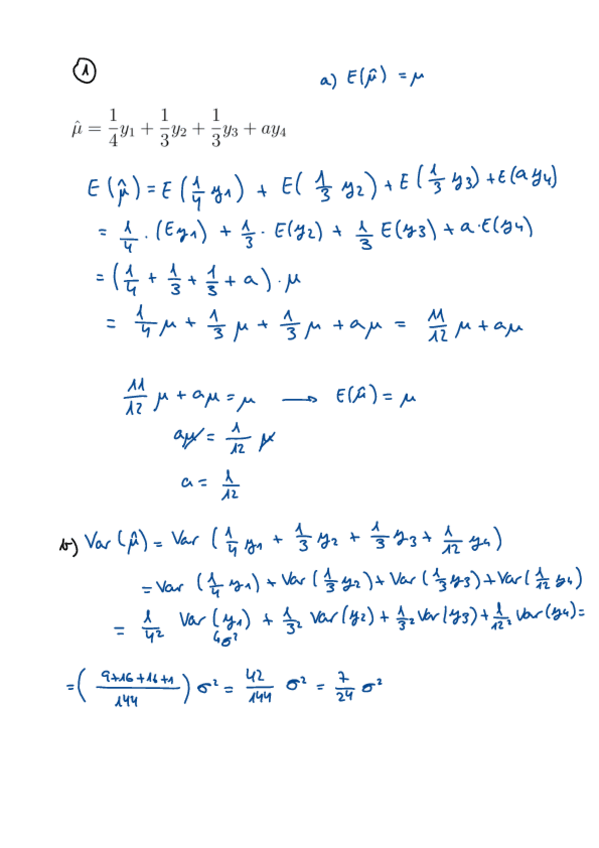 ①
a) E(μ̂) = μ
μ̂ = 1/4 y₁ + 1/3 y₂ + 1/3 y₃ + ay₄
E(μ̂) = E(1/4 y₁) + E(1/3 y₂) + E(1/3 y₃) + E(a y₄)
= 1/4 · (Ey₁) + 1/3 · E(y₂) + 1/3 E(y₃) + a · E(y₄)
= (1/4 + 1/3 + 1/3 + a) · μ
= 1/4 μ + 1/3 μ + 1/3 μ + aμ = 11/12 μ + aμ
11/12 μ + aμ = μ → E(μ̂) = μ
aμ = 1/12 μ
a = 1/12
b) Var(μ̂) = Var (1/4 y₁ + 1/3 y₂ + 1/3 y₃ + 1/12 y₄)
= Var (1/4 y₁) + Var (1/3 y₂) + Var (1/3 y₃) + Var (1/12 y₄)
= 1/4² Var (y₁) + 1/3² Var (y₂) + 1/3² Var (y₃) + 1/12² Var (y₄) =
↳σ²
= (9+16+16+1 / 144) σ² = 42/144 σ² = 7/24 σ²